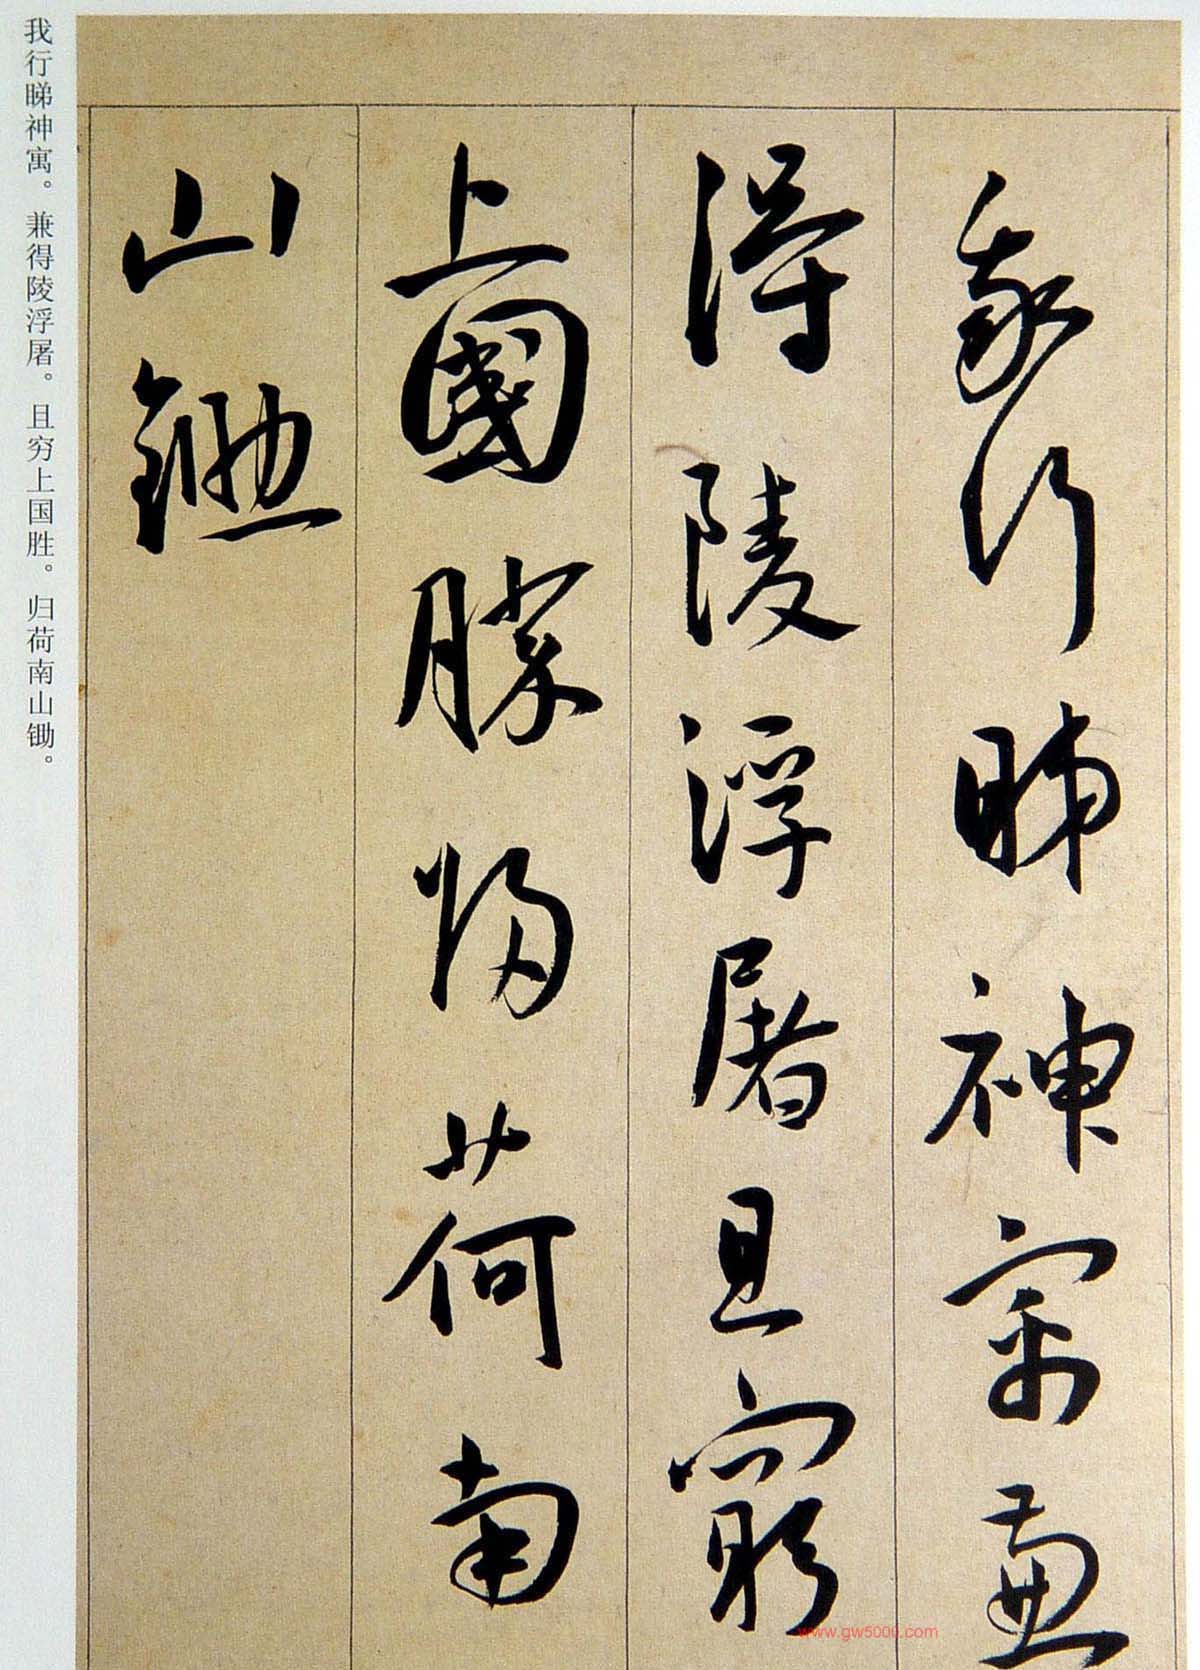 我行睇神寓兼
得陵浮屠且窮
上國勝歸荷南
山鋤
我行睇神寓。兼得陵浮屠。且穷上国胜。归荷南山锄。
www.gw5000.com